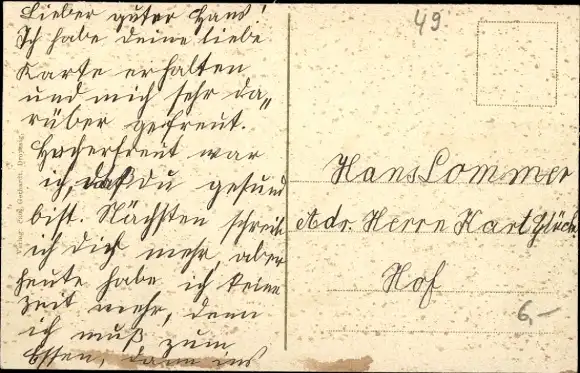 Lieber guter Hans!
Ich habe deine liebe
Karte erhalten
und mich sehr da„
rüber gefreut.
Hocherfreut war
ich, daß du gesund
bist. Nächsten schreib
ich dich mehr, aber
heute habe ich keine
Zeit mehr, denn
ich muß zum
Essen, dann ins
49
Hans Lommer
Adr. Herrn Karl Glück
Hof
6,-